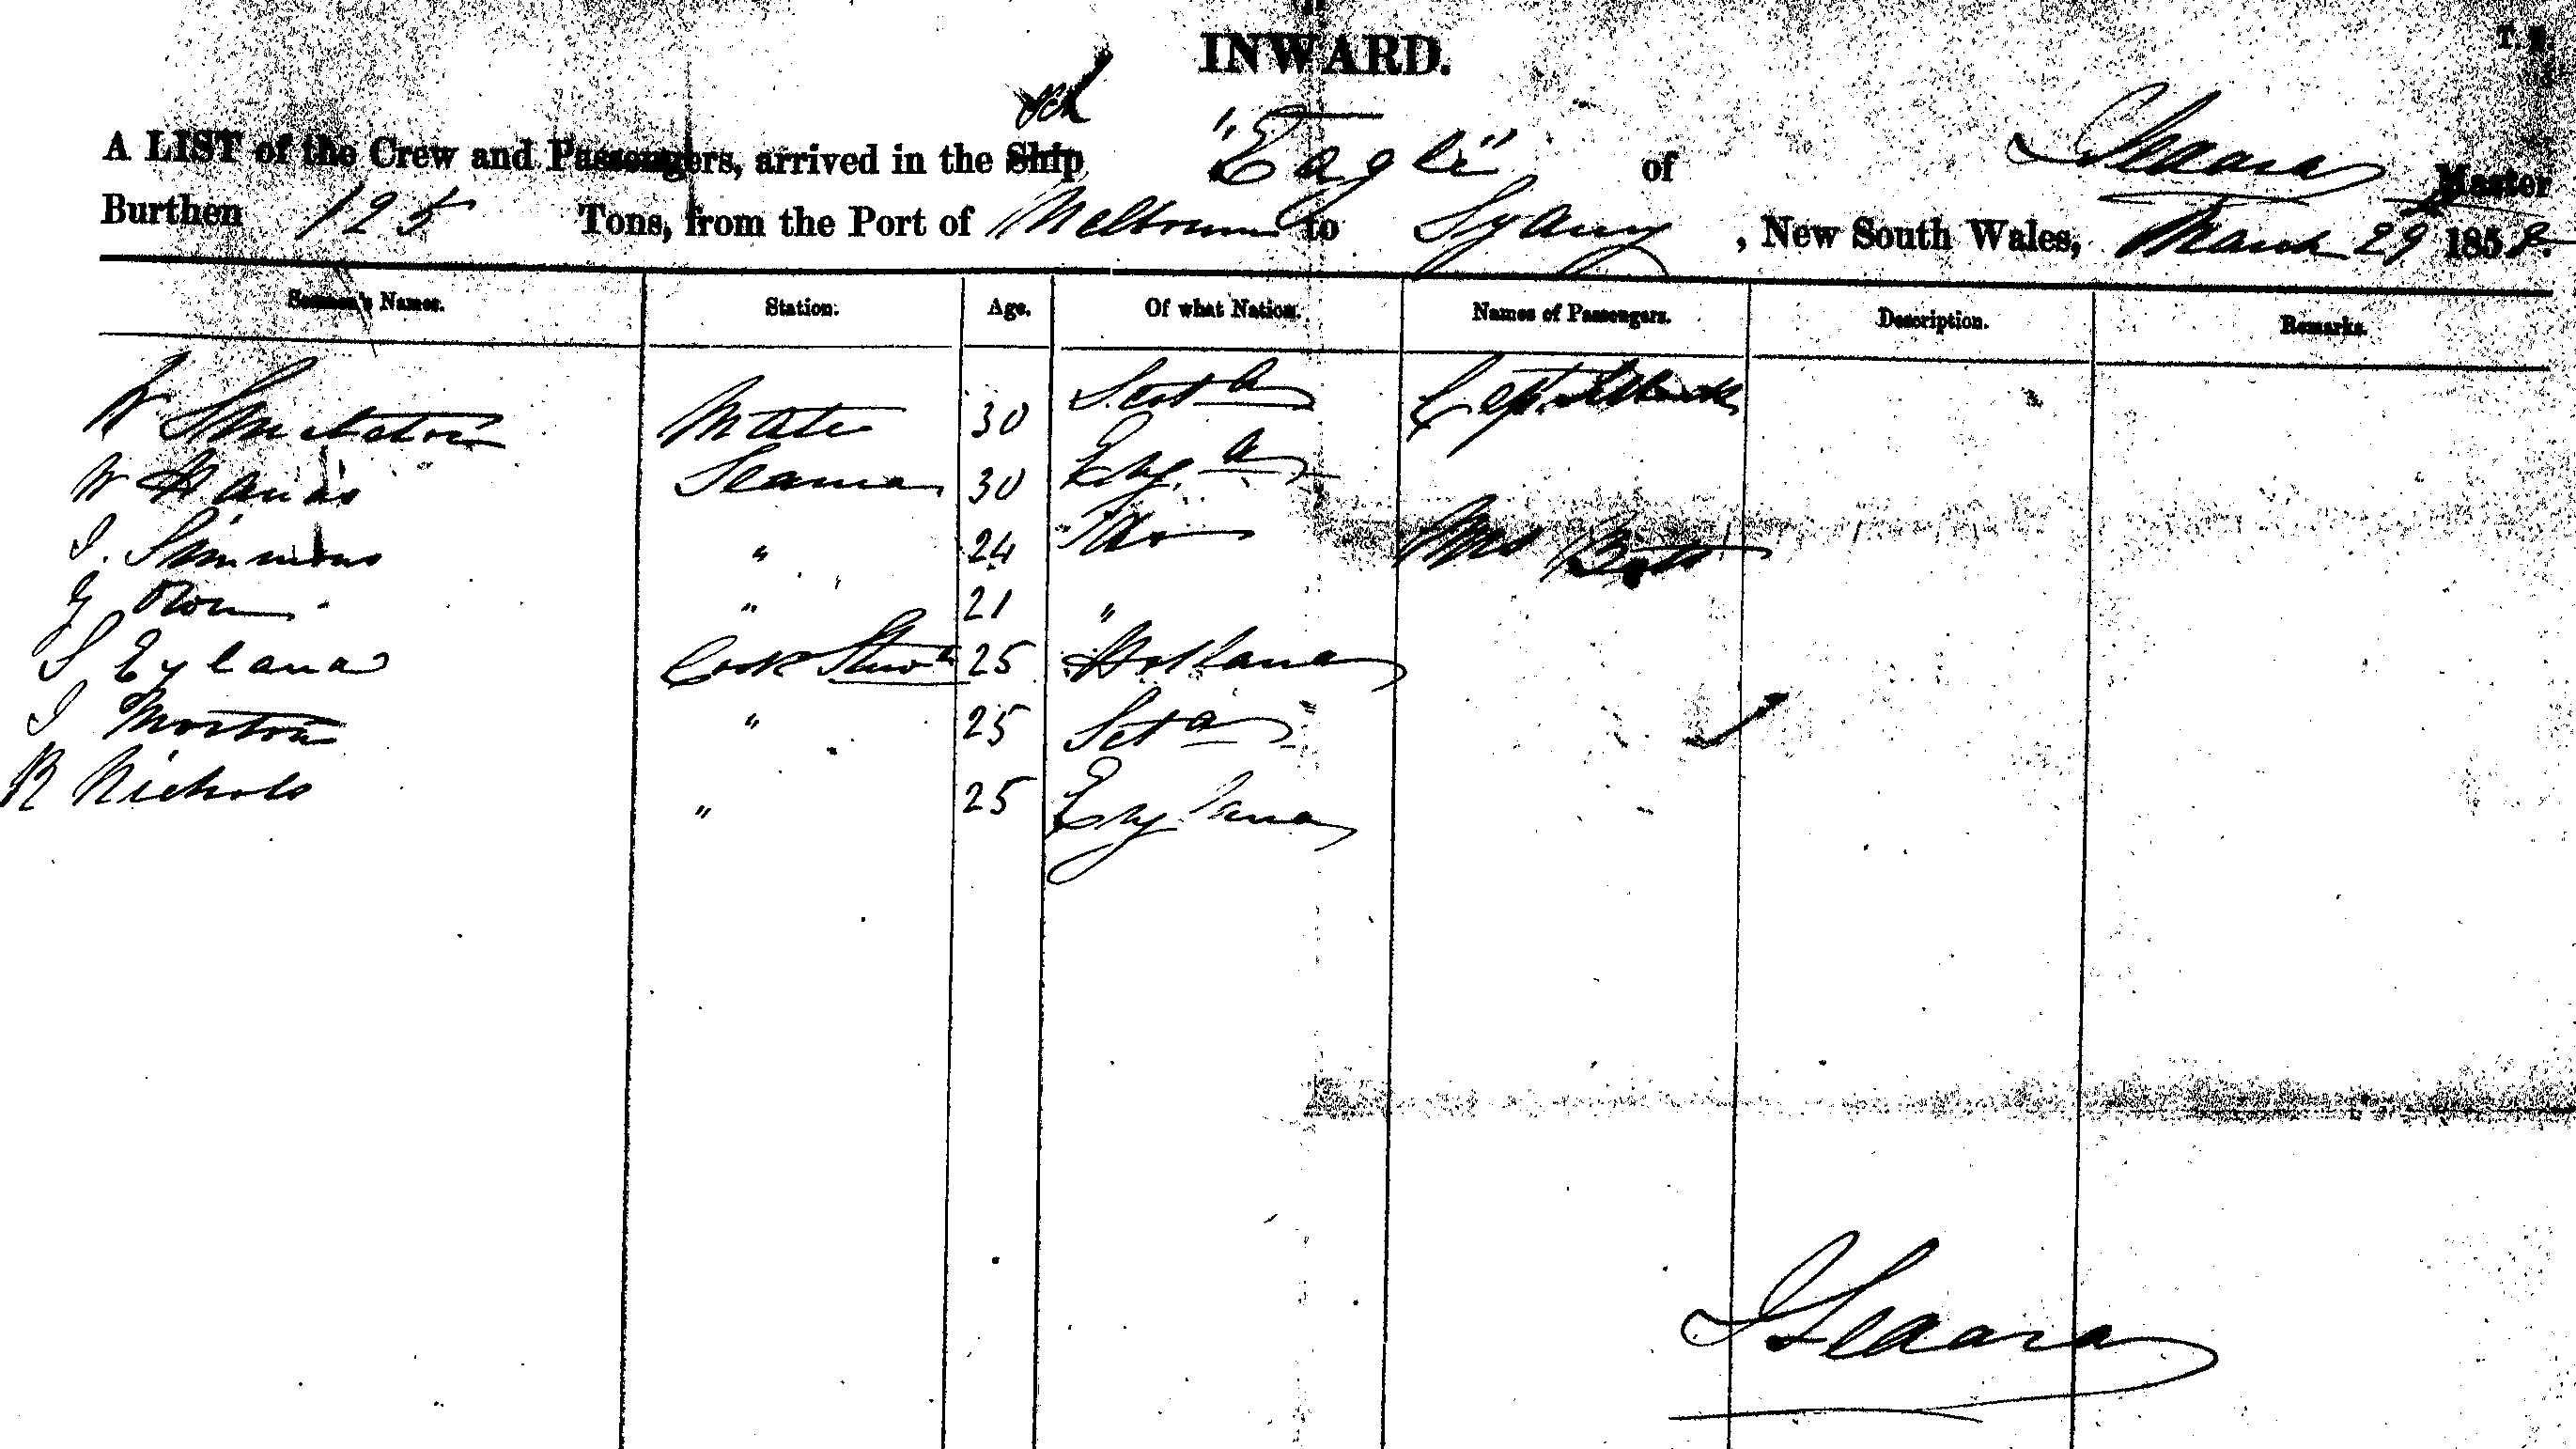 INWARD.
A LIST of the Crew and Passengers, arrived in the Ship Sch "Eagle" of Master
Burthen 125 Tons, from the Port of Melbourne to Sydney, New South Wales, March 29 1858.
Seamen's Names. Station. Age. Of what Nation. Names of Passengers. Description. Remarks.
W Mate 30 Scotd Capt.
W Seaman 30 Eng.d
J. Simmons " 24 Do Mrs
" 21 "
Cook Stewd 25 Holland
J Morton " 25 Sctd
R Nichols " 25 England